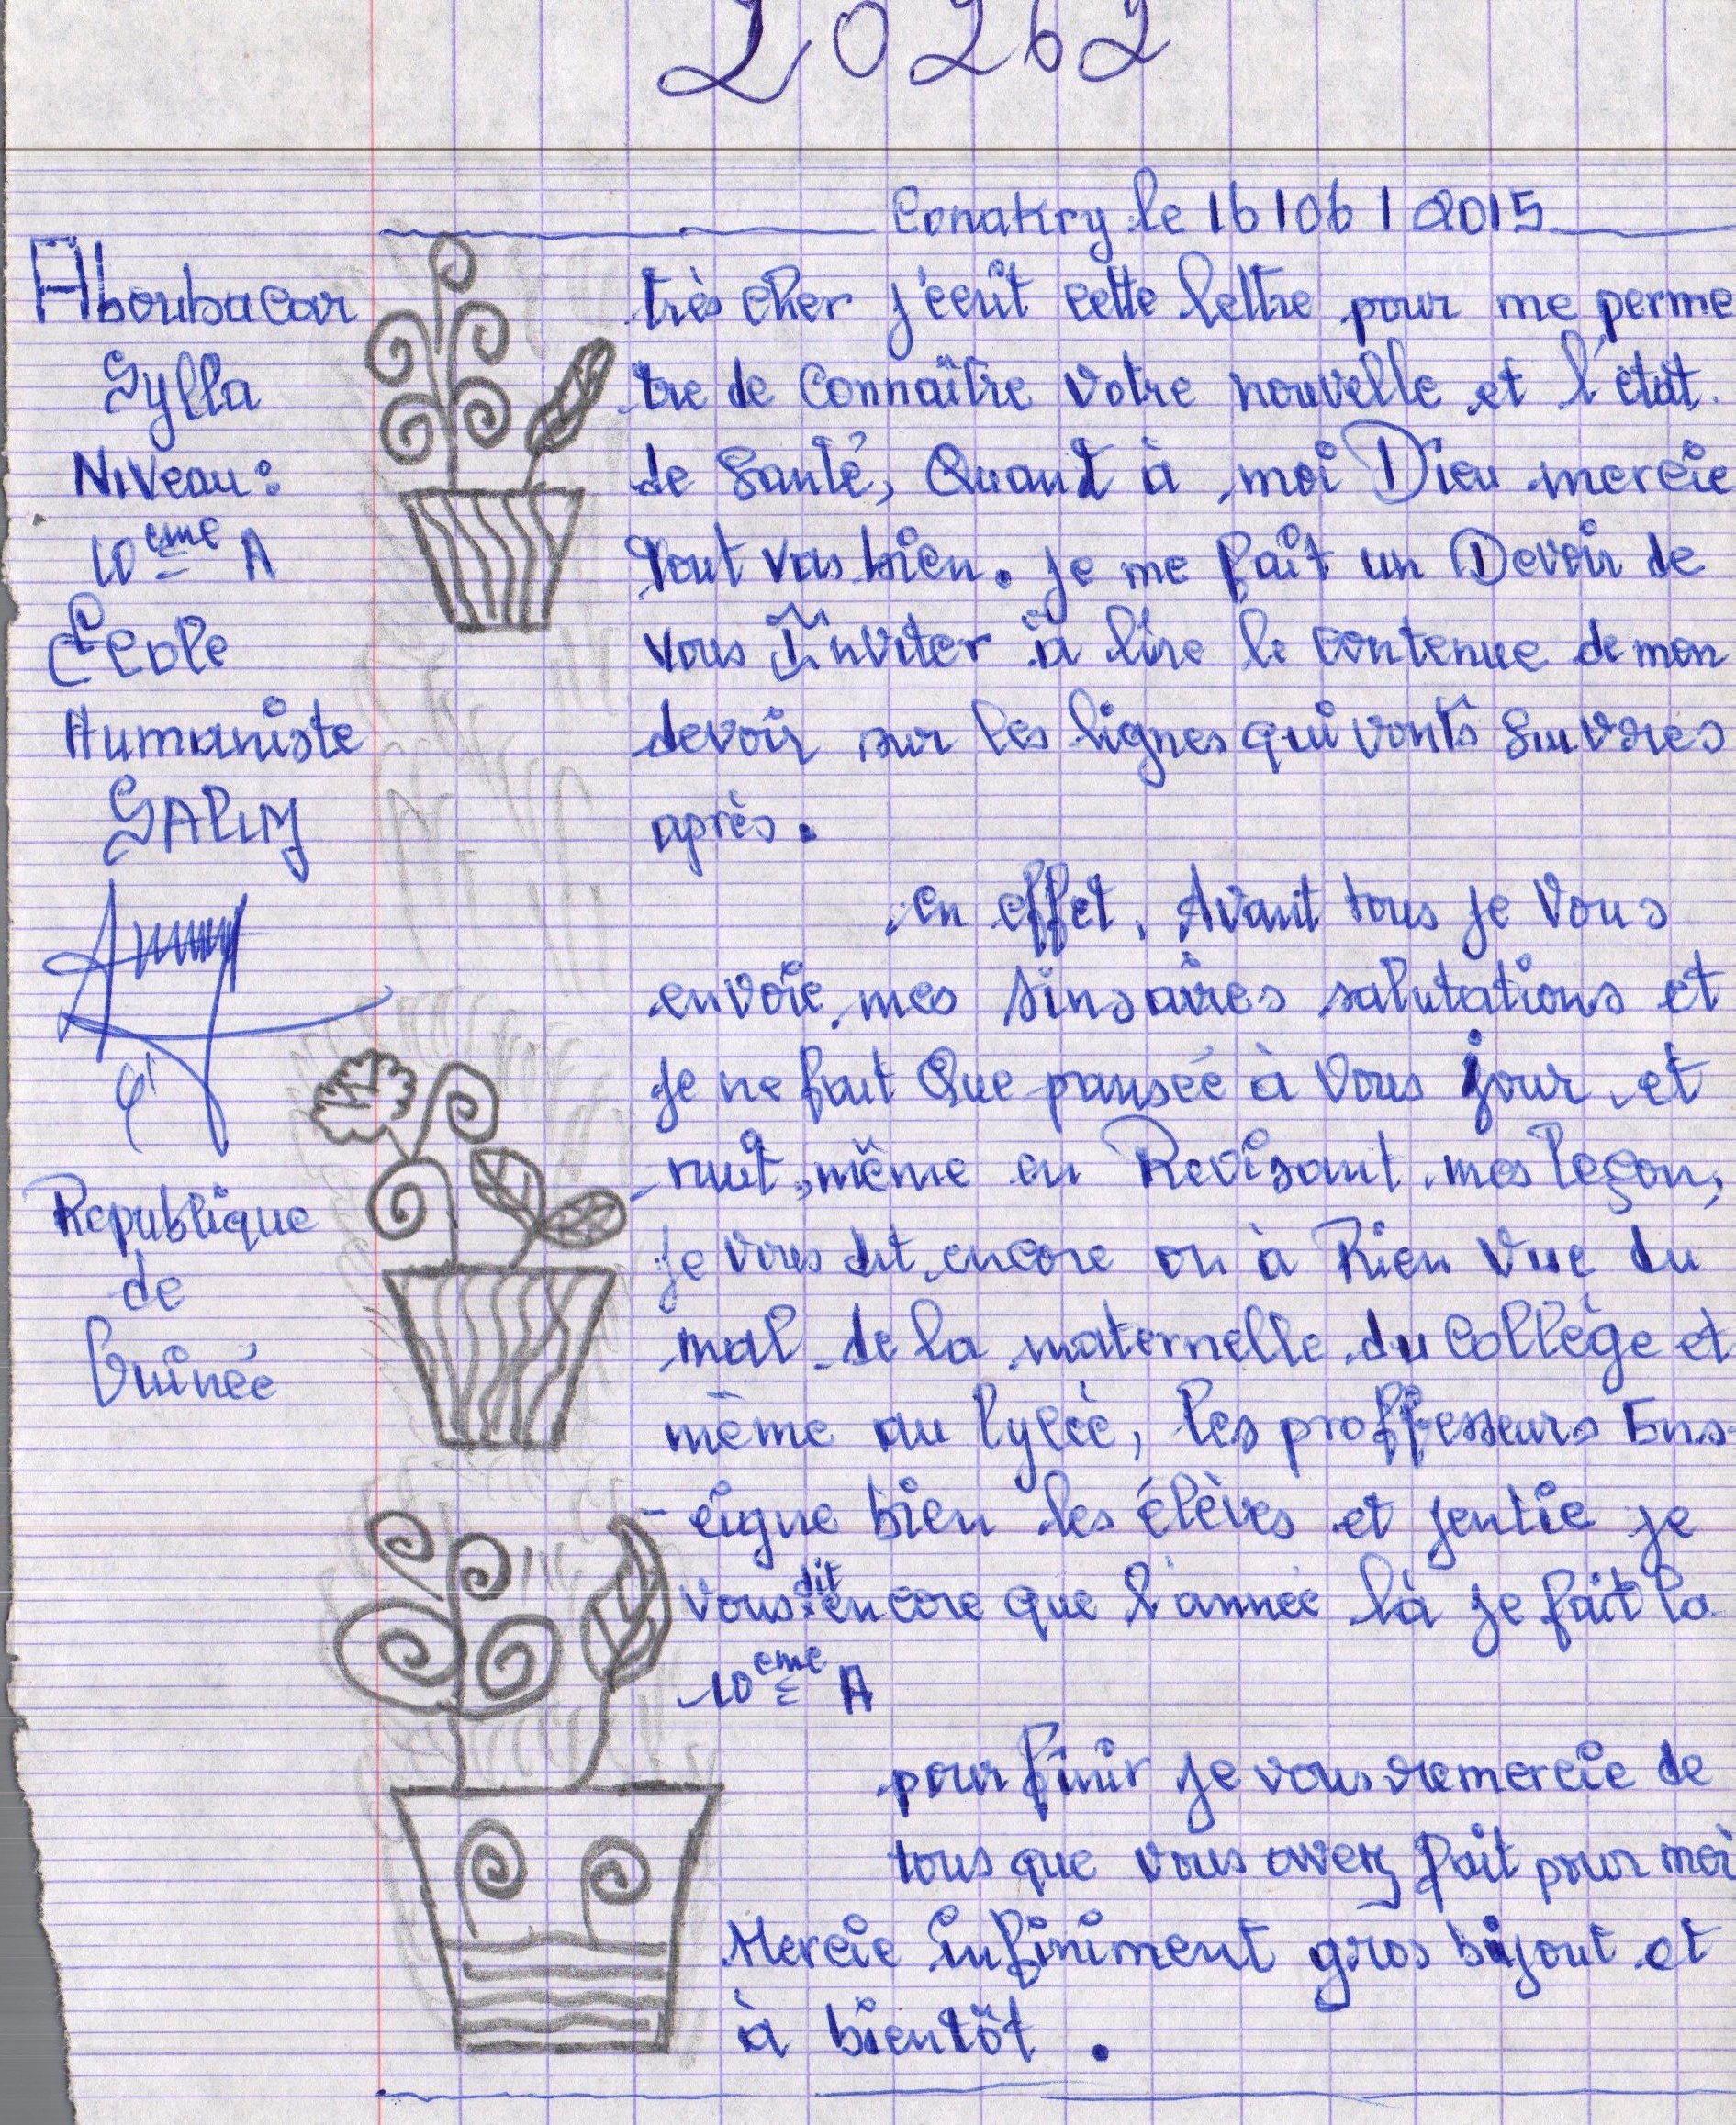 20262
Conakry le 16/06/2015
Aboubacar
Sylla
Niveau:
10eme A
École
Humaniste
SALIM
Republique
de
Guinée
très cher j'ecrit cette lettre pour me perme
tre de connaître votre nouvelle et l'état
de Santé, Quant à moi Dieu mercie
tout vas bien. je me fait un Devoir de
vous Inviter à lire le contenue de mon
devoir sur les lignes qui vonts Suivres
après.
en effet, Avant tous je Vous
envoie mes sinsaires salutations et
je ne fait Que pansée à Vous jour et
nuit, même en Revisant mes leçon,
je vous dit encore on à Rien Vue du
mal de la maternelle du collège et
même au lyceé, les proffesseurs Ens-
eigne bien les élèves et jentie je
vous dit encore que l'année là je fait la
10eme A
pour finir je vous remercie de
tous que vous avez fait pour moi
Mercie infiniment gros bijout et
à bientôt.